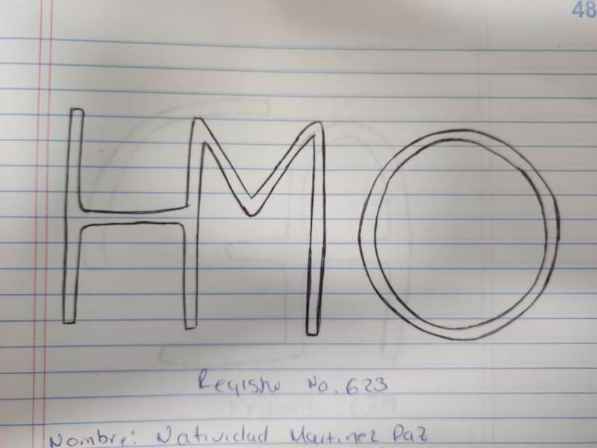 48
HMO
Registro No. 623
Nombre: Natividad Martinez Paz